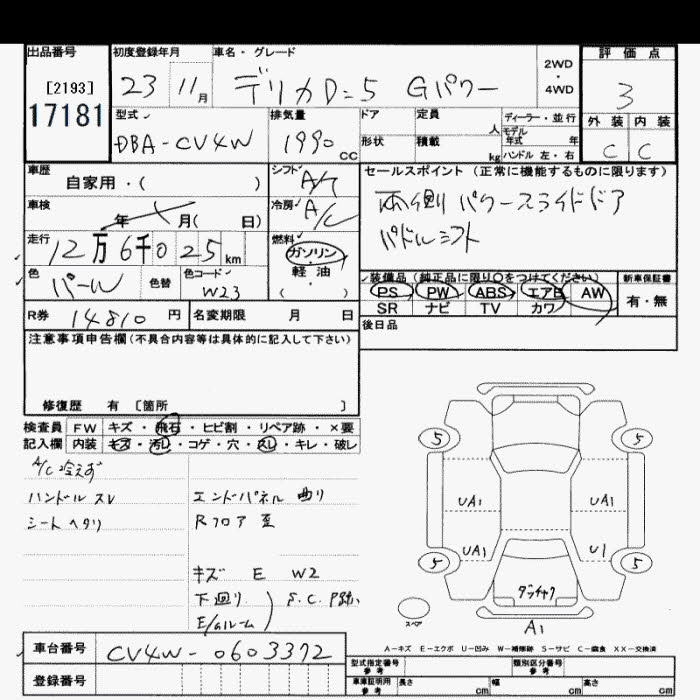 出品番号 初度登録年月 車名・グレード 評価点
[2193] 23 11月 デリカD:5 Gパワー 2WD・4WD 3
17181
型式 排気量 ドア 定員 ディーラー・並行 外装 内装
DBA-CV4W 1990cc 人 モデル年式 年 C C
形状 積載 kg ハンドル 左・右
車歴 シフト セールスポイント (正常に機能するものに限ります)
自家用・( ) A/T 両側パワースライドドア
車検 冷房 パドルシフト
年 月( 日) A/C
走行 燃料
12万6千025km ガソリン・軽油・( )
色 色替 色コード 装備品 (純正品に限り○をつけてください) 新車保証書
パール W23 PS PW ABS エアB AW 有・無
SR ナビ TV カワ
R券 14810円 名変期限 月 日 後日品
注意事項申告欄(不具合内容等は具体的に記入して下さい)
修復歴 有 [箇所 ]
検査員 FW キズ・飛石・ヒビ割・リペア跡・×要
記入欄 内装 キズ・汚レ・コゲ・穴・スレ・キレ・破レ
A/C冷えず
ハンドルスレ エンドパネル 曲り
シートヘタリ Rフロア 歪
キズ E W2
下廻り S.C.
E/gルーム
5 5
UA1 UA1
UA1 U1
5 5
スペア
A1
A-キズ E-エクボ U-凹み W-補修跡 S-サビ C-腐食 XX-交換済
車台番号 CV4W-0603372 型式指定番号 参考 類別区分番号 参考
登録番号 車庫証明用 参考 長さ cm 幅 cm 高さ cm